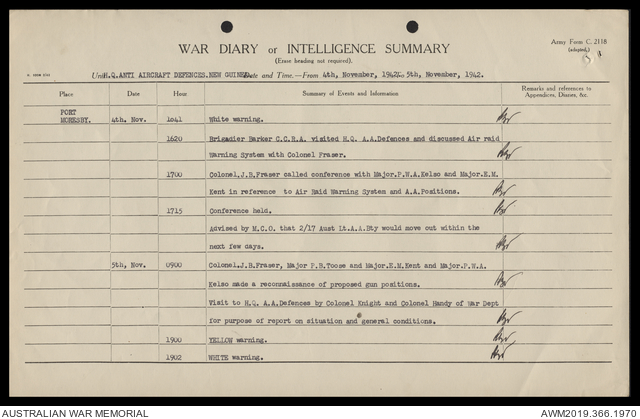 Army Form C. 2118
(adapted)
WAR DIARY or INTELLIGENCE SUMMARY
(Erase heading not required).
Unit H.Q.ANTI AIRCRAFT DEFENCES.NEW GUINEA. Date and Time.—From 4th, November, 1942 to 5th, November, 1942.
Place Date Hour Summary of Events and Information Remarks and references to Appendices, Diaries, &c.
PORT
MORESBY. 4th. Nov. 1041 White warning.
1620 Brigadier Barker C.C.R.A. visited H.Q. A.A.Defences and discussed Air raid
Warning System with Colonel Fraser.
1700 Colonel.J.B.Fraser called conference with Major.P.W.A.Kelso and Major.E.M.
Kent in reference to Air Raid Warning System and A.A.Positions.
1715 Conference held.
Advised by M.C.O. that 2/17 Aust Lt.A.A.Bty would move out within the
next few days.
5th, Nov. 0900 Colonel.J.B.Fraser, Major P.B.Toose and Major.E.M.Kent and Major.P.W.A.
Kelso made a reconnaissance of proposed gun positions.
Visit to H.Q. A.A.Defences by Colonel Knight and Colonel Handy of War Dept
for purpose of report on situation and general conditions.
1900 YELLOW warning.
1902 WHITE warning.
AUSTRALIAN WAR MEMORIAL AWM2019.366.1970